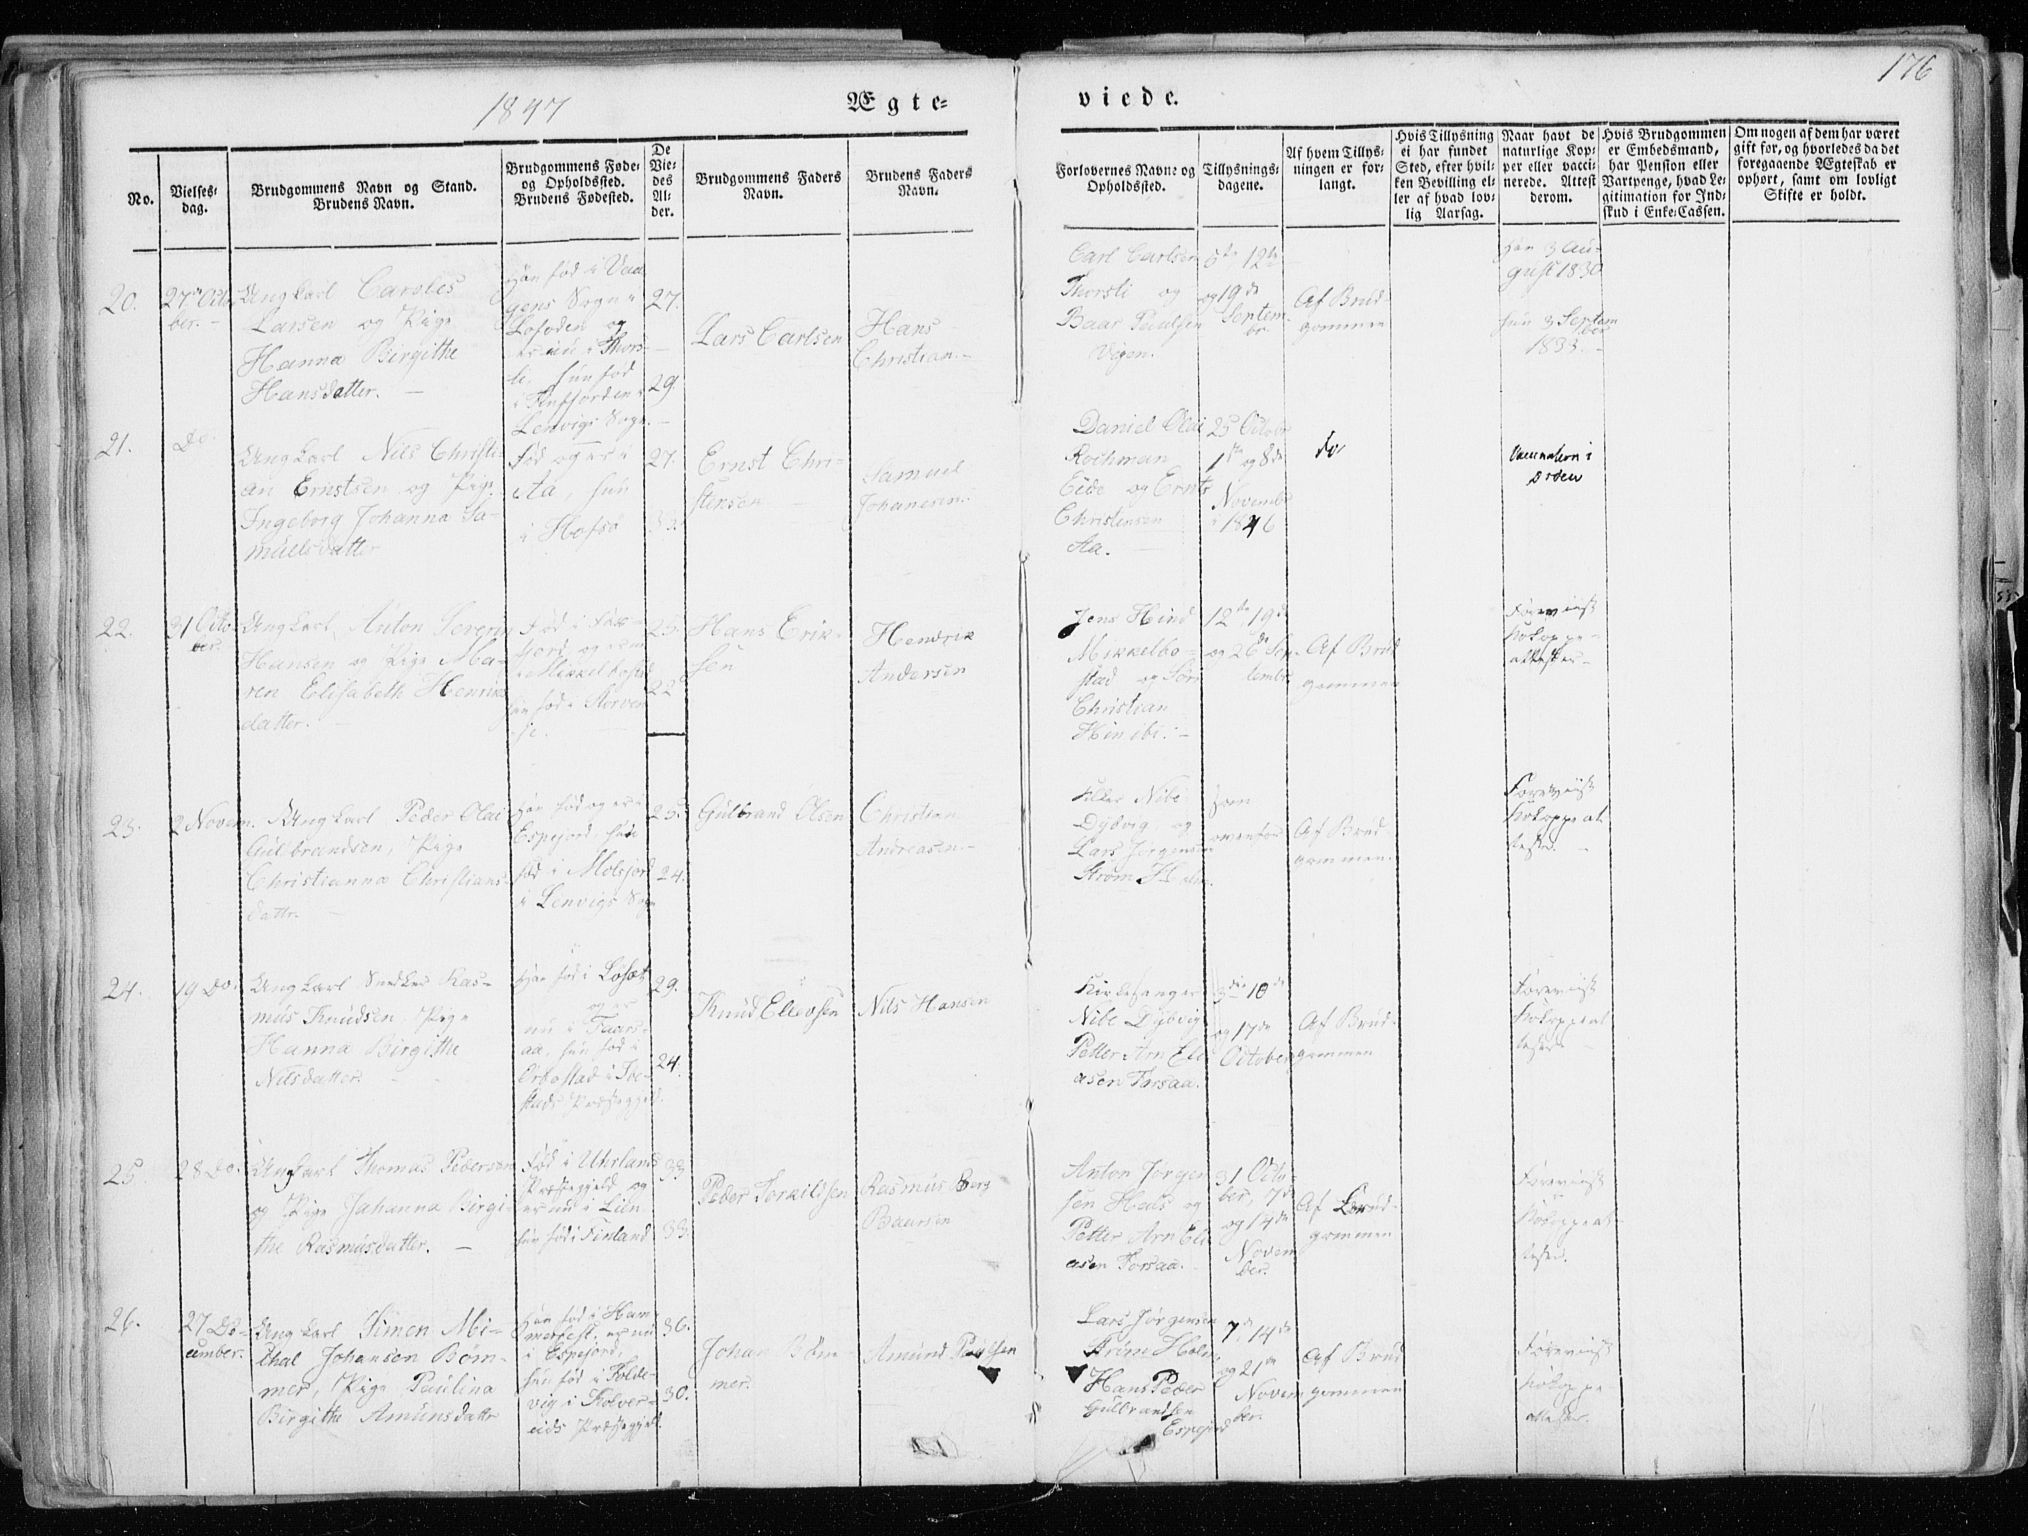 176
1847
Ægte=
viede.
No.
Vielses-
dag.
Brudgommens Navn og Stand.
Brudens Navn.
Brudgommens Føde-
og Opholdssted.
Brudens Fødested.
De
Vie-
des
Al-
der.
Brudgommens Faders
Navn.
Brudens Faders
Navn.
Forlovernes Navne og
Opholdssted.
Tillysnings-
dagene.
Af hvem Tillys-
ningen er for-
langt.
Hvis Tillysning
ei har fundet
Sted, efter hvil-
ken Bevilling el-
ler af hvad lov-
lig Aarsag.
Naar havt de
naturlige Kop-
per eller vacci-
nerede. Attest
derom.
Hvis Brudgommen
er Embedsmand,
har Pension eller
Vartpenge, hvad Le-
gitimation for Ind-
skud i Enke-Cassen.
Om nogen af dem har været
gift før, og hvorledes da det
foregaaende Ægteskab er
ophørt, samt om lovligt
Skifte er holdt.
20.
27de Octo
ber.
Ungkarl Caroles
Larsen og Pige
Hanna Birgithe
Hansdatter.
Han fød i Vaa
gens Sogn i
Lofoden og
er nu i Thors-
li. hun fød
i Finfjorden i
Lenvigs Sogn.
27.
29.
Lars Carlsen
Hans
Christian.
Carl Carlsen
Thorsli og
Baar Paulsen
Vigen.
5te 12te
og 19de
Septem-
br.
Af Brud-
gommen
Han 3 Au-
gust 1830
hun 3 Septem
ber
1833.
21.
Do.
Ungkarl Nils Christi-
an Ernstsen og Pige
Ingeborg Johanna Sa-
muelsdatter
Fød og er i
Aa, hun
i Hofsø
27.
Ernst Chri-
stensen
Samuel
Johanesen.
Daniel Olai
Rochman
Eide og Ernts
Christensen
Aa.
25 Octobr
1te og 8de
Novembr
i 1846
do
22.
31 Octo-
ber.
Ungkarl Anton Severin
Hansen og Pige Ma-
ren Elisabeth Henriks
datter.
23.
22
Hans Erik-
sen
Hendrik
Andersen
Jens Hind
Mikkelbo-
stad og Sørn
Christian
12te 19de
og 26de Sep-
tembr
Af Brud
gommen
Foreviist
Kokoppe-
attester
23.
2 Novem.
Ungkarl Peder Olai
Gulbrandsen, Pige
Christianna Christians-
dattr.
Han fød og er i
Espejord, hun
fød i Molsjord
i Lenvigs Sogn
25.
24.
Gulbrand Olsen
Christian
Andreasen.
Nibe
Dybvig og
Lars Jørgensen
Strøm
som
ovenfor
Af Brud-
gommen.
Foreviist
Kokoppeat
tester.
24.
19 Do.
Ungkarl Snedker Ras-
mus Knudsen Pige
Hanna Birgithe
Nilsdatter.
29.
24.
Knud Ellevsen
Nils Hansen
Kirkesanger
Nibe Dybvig
Petter Arn Eli
asen Forsaa.
3die 10de
og 17de
October
Af Brud-
gommen
Foreviist
Kokoppeat
tester
25.
28 Do.
Ungkarl Thomas Pedersen
og Pige Johanna Birgi-
the Rasmusdatter.
Fød i Uhrlands
Præstegjeld og
er nu i Lien
hun fød i Finland
33.
33.
Peder Torkildsen
Rasmus Berg
Baarsen
Anton Jørgen
sen Heds og
Petter Arn Eli
asen Forsaa.
31 Octo-
ber, 7de
og 14de
Novem
ber.
Af Brud-
gommen
Foreviist
Kokoppeat
tester.
26.
27 De-
cember.
Ungkarl Simon Mi-
chal Johansen Bøm-
mer, Pige Paulina
Birgithe Amunsdattr
Han fød i Ham-
merfest, er nu
i Espejord,
hun fød i Folde-
vig i Kolver-
eids Præstegjeld.
36.
30.
Johan Bøm-
mer.
Amund Paulsen
Lars Jørgensen
Hans Peder
Gulbrandsen
Espejord
7de 14de
og 21de
Novem
ber.
Af Brud
gommen
Foreviist
Kokoppe
attester.